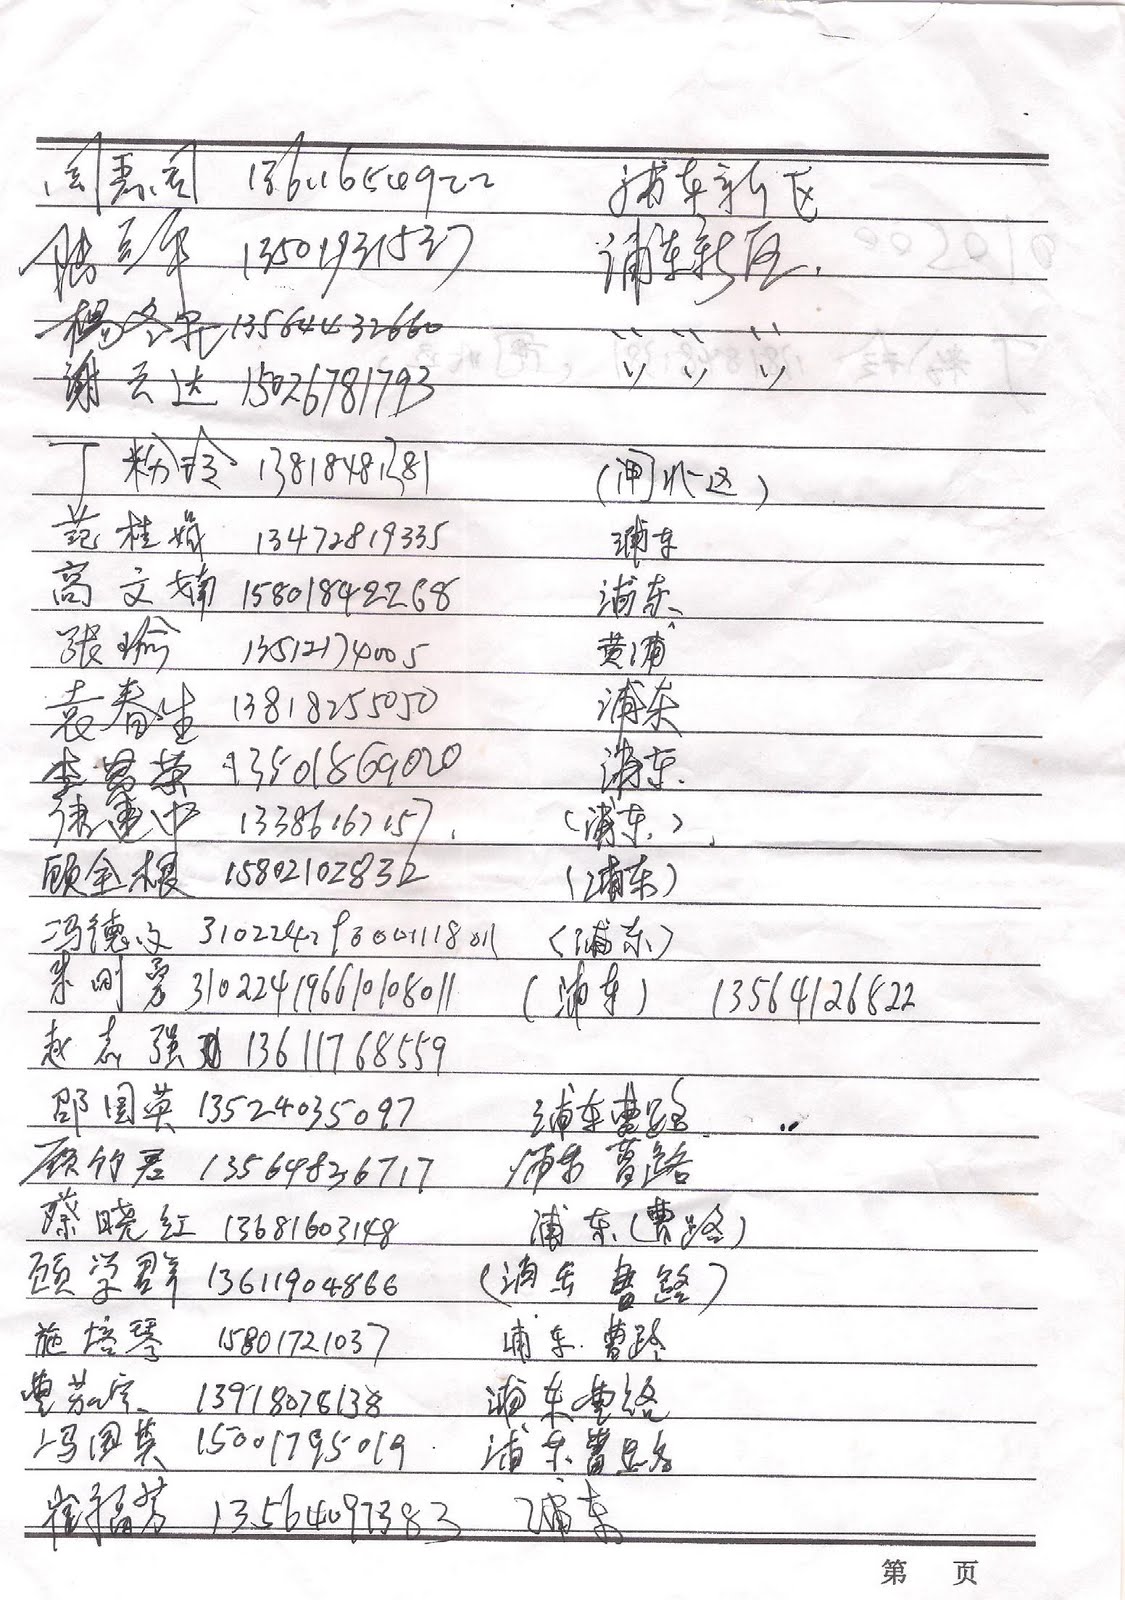 周 13611654922 浦东新区
陆 13501931537 浦东新区.
杨 13564432660 〃 〃 〃
谢云达 15026781793 〃 〃 〃
丁粉玲 13818481381 (闸北区)
范桂娟 13472819335 浦东
高文婻 15801842268 浦东
张瑜 13512174005 黄浦
袁春生 13818255050 浦东
李昌荣 13501869020 浦东
建中 13386167157. (浦东)
顾金根 15802102832 (浦东)
冯德文 (浦东)
朱刚勇 310224196610108011 (浦东) 13564126822
赵志强 13611768559
邵国英 13524035097 浦东曹路
顾竹君 13564836717 浦东曹路
蔡晓红 13681603148 浦东(曹路)
顾学群 13611904866 (浦东曹路)
施培琴 15801721037 浦东曹路
13918078138 浦东曹路
冯国英 15001795019 浦东曹路
崔福芳 13564097383 浦东
第 页